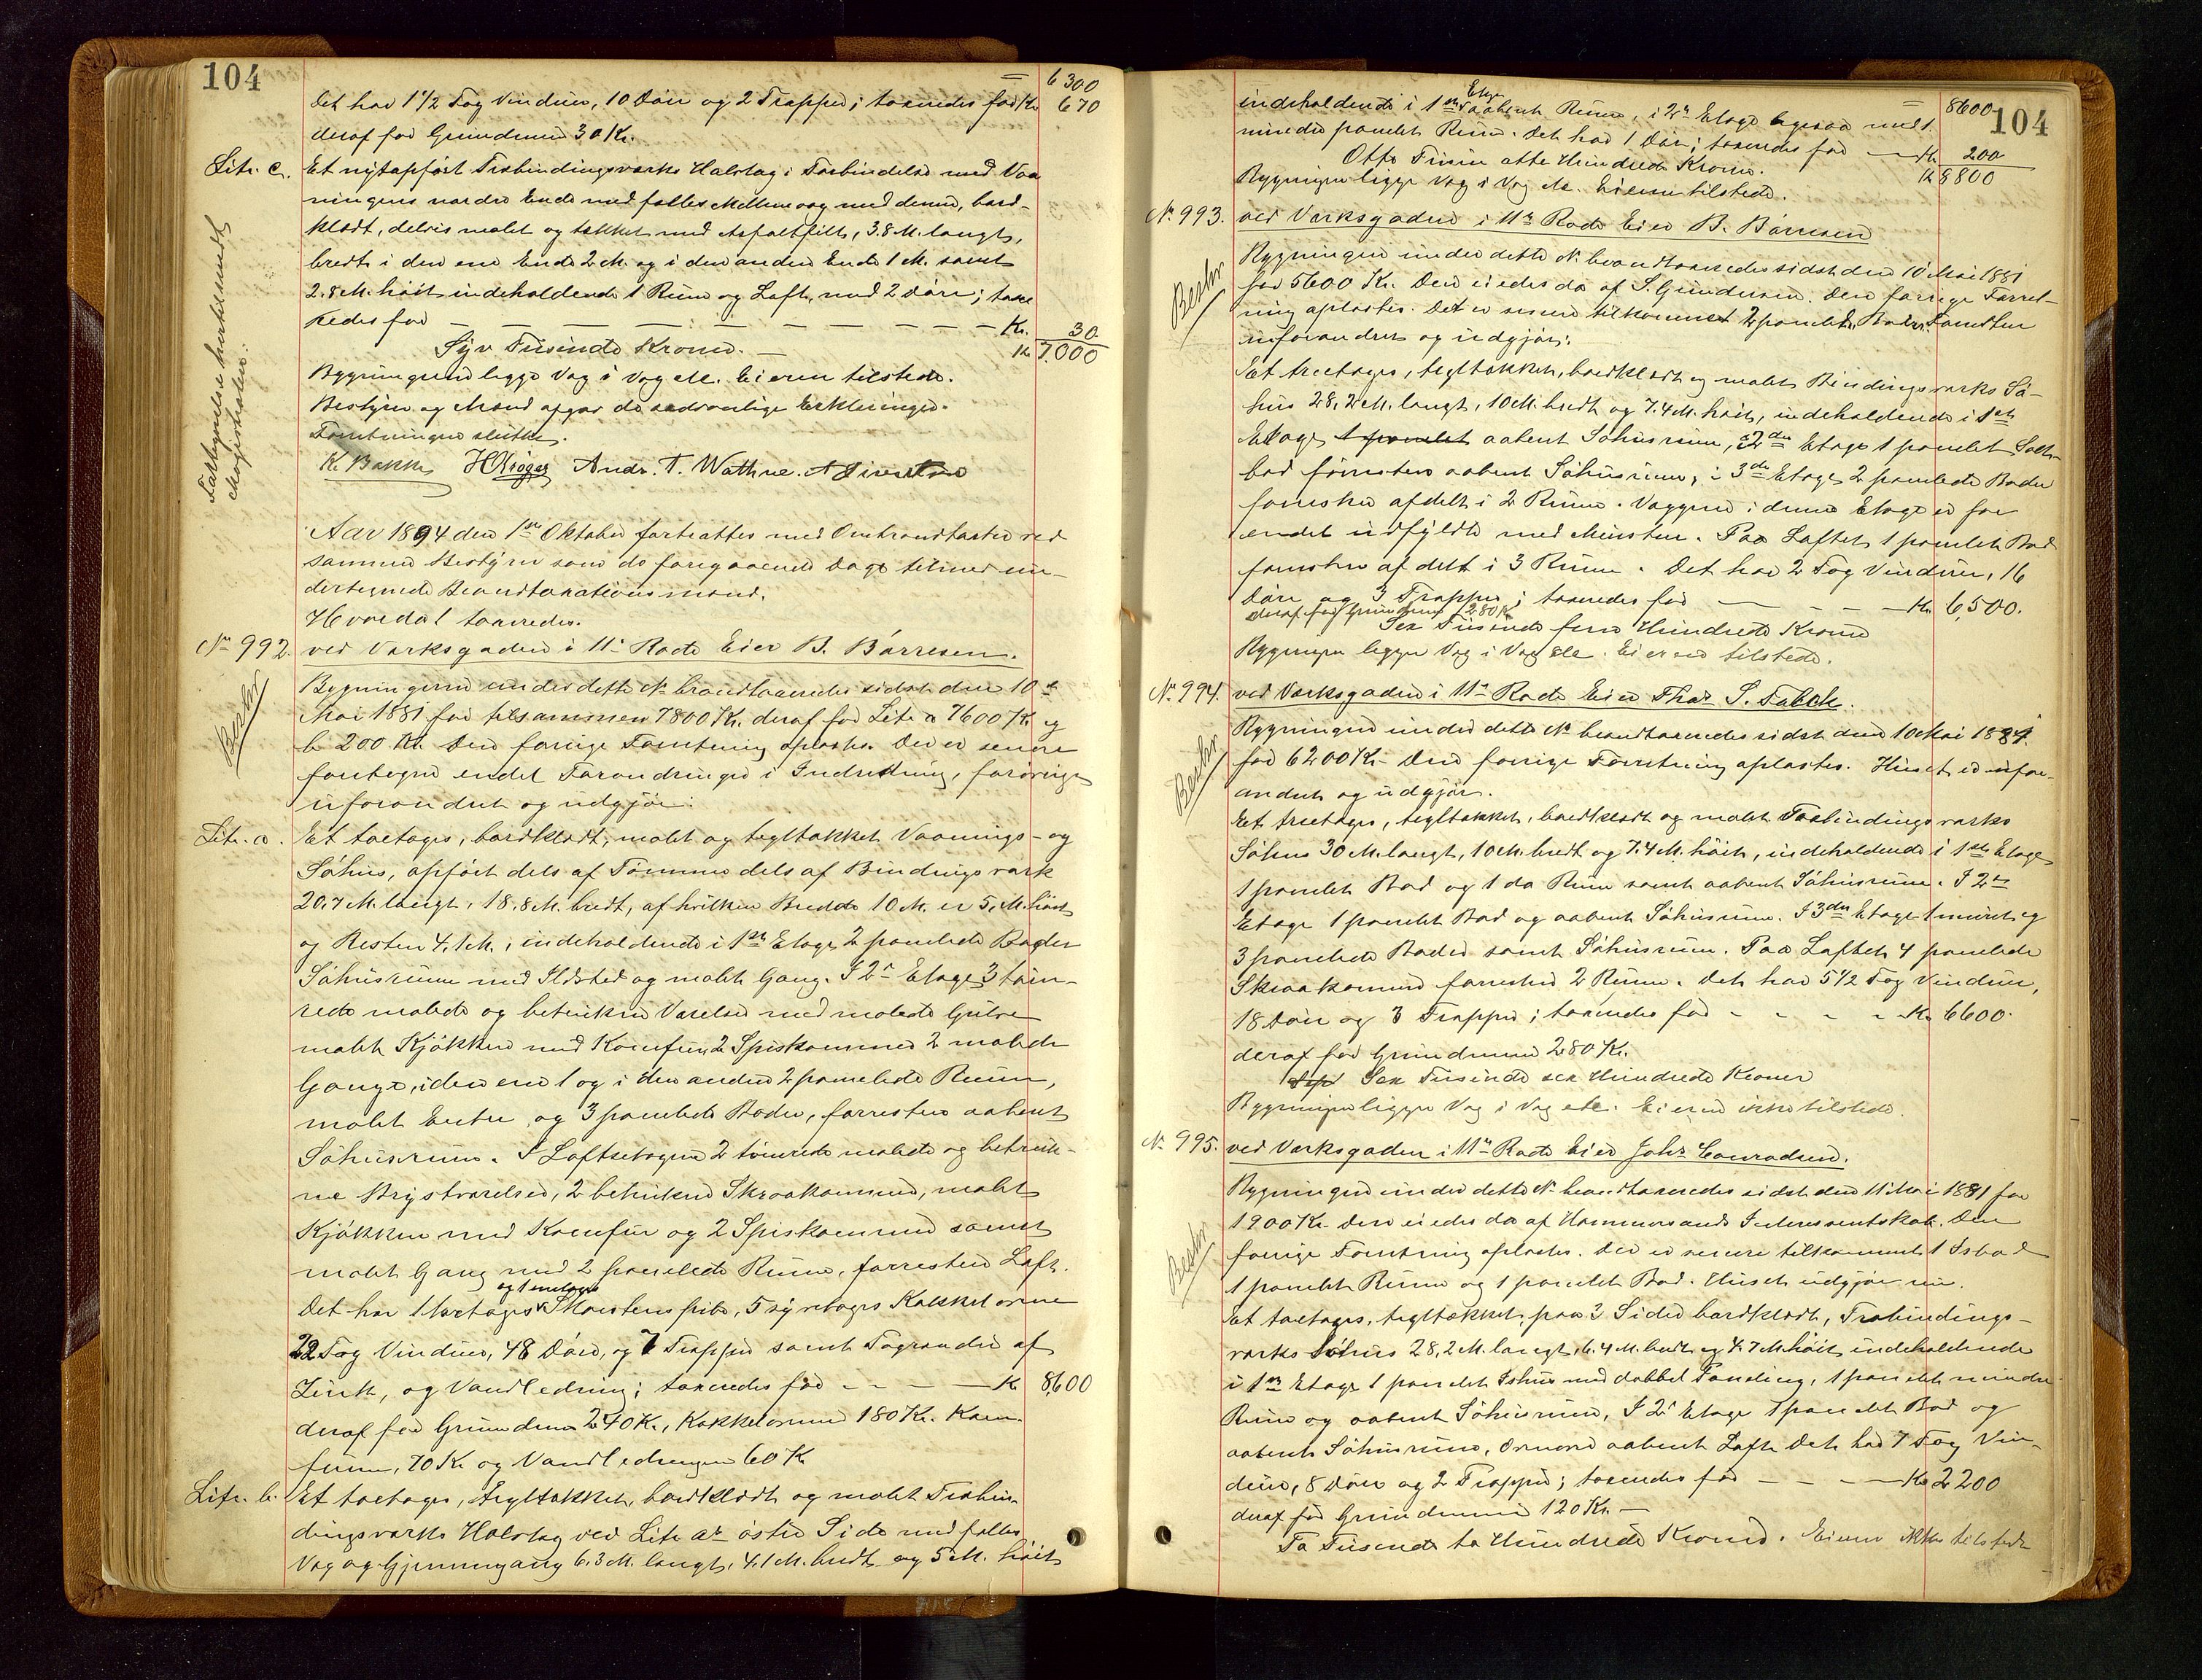 104
= 6300
det har 1 1/2 Fag Vinduer, 10 Döre og 2 Trapper; taxeredes for Kr. 670
deraf for Grundmur 30 Kr.
Litr. c. Et nyopfört Træbindingsværks Halvtag i Forbindelse med Vaa
ningens nordre Ende med fælles Mellemvæg med denne, bord-
klædt, delvis malet og tækket med Asfaltfilt, 3.8 M. langt,
bredt i den ene Ende 2 M. og i den anden Ende 1 M. samt
2.8 M. höit indeholdende 1 Rum og Loft, med 2 Döre; taxe
redes for — — — — — — — Kr. 30
Syv Tusinde Kroner. — Kr. 7.000
Bygningerne ligge Væg i Væg etc. Eieren tilstede.
Bestyrer og Mænd afgav de sædvanlige Erklæringer.
Forretningen sluttet.
K. Bakke HKröger Andr. T. Wathne. A Sivertsen
Aar 1894 den 1ste Oktober fortsattes med Ombrandtaxter ved
samme Bestyrer som de foregaaende Dage tilmed un-
dertegnede Brandtaxationsmænd.
Hvorda l taxeredes.
No 992. ved Værksgaden i 11te Rode Eier B. Börresen.
Besbr
Bygningerne under dette No brandtaxeredes sidst den 10de
Mai 1881 for tilsammen 7800 Kr. deraf for Litr a 7600 Kr. og
b 200 Kr. Den forrige Forretning oplæstes. Der er senere
foretagne endel Forandringer i Indretning, forövrigt
uforandret og udgjör:
Litr. a. Et toetages, bordklædt, malet og tegltækket Vaanings- og
Söhus, opfört dels af Tömmer dels af Bindingsværk
20,7 M. langt, 18.8 M. bredt, af hvilken Bredde 10 M. er 5, M. höit
og Resten 4.1 M.; indeholdende i 1ste Etage 2 panelede Boder
Söhusrum med Ildsted og malet Gang. I 2den Etage 3 töm-
rede malede og betrukne Værelser med malede Gulve
malet Kjökken med Komfur, 2 Spiskammer 2 malede
Gange, i den ene 1 og i den anden 2 panelede Rum,
malet Entre, og 3 panelede Boder, forresten aabent
Söhusrum. I Loftsetagen 2 tömrede malede og betruk-
ne Kvistværelser, 2 betrukne Skraakammer, malet
Kjökken med Komfur og 2 Spiskammer samt
malet Gang med 2 panelede Rum, forresten Loft.
og 1 enetages
Det har 1 toetages Skorstenspibe, 5 syvetages Kakkelovne
22 Fag Vinduer, 48 Döre, og 7 Trapper samt Tagrender af
Zink, og Vandledning; taxeredes for — — — Kr. 8,600
deraf for Grundmur 240 Kr., Kakkelovnene 180 Kr. Kom-
furene, 70 Kr. og Vandledningen 60 Kr.
Litr. b. Et toetages, tegltækket, bordklædt og malet Træbin-
dingsværks Halvtag ved Litr a's östre Side med fælles
Væg og Gjennemgang 6.3 M. langt, 4.1 M. bredt og 5 M. höit
104
= 8600
Etage
indeholdende i 1ste aabent Rum, i 2den Etage ligesaa med 1
mindre panelet Rum. Det har 1 Dör; taxeredes for — Kr. 200
Otte Tusin otte Hundrede Kroner. Kr 8800
Bygningen ligge Væg i Væg etc. Eieren tilstede.
No. 993. ved Værksgaden i 11te Rode Eier B. Börresen
Besbr
Bygningen under dette No brandtaxeredes sidst den 10 Mai 1881
for 5600 Kr. Den eiedes da af S. Gundersen. Den forrige Forret-
ning oplæstes. Det er senere tilkommet 2 panelede Boder. Forresten
uforandret og udgjör:
Et treetages, tegltækket, bordklædt og malet Bindingsværks Sö-
hus 28,2 M. langt, 10 M. bredt og 7.4 M. höit, indeholdende i 1ste
Etage 1 panelet aabent Söhusrum, i 2den Etage 1 panelet Salt-
bod forresten aabent Söhusrum, i 3die Etage 2 panelede Boder
forresten afdelt i 2 Rum. Væggene i denne Etage er for
endel udfyldte med Mursten. Paa Loftet 1 panelet Bod
forresten afdelt i 3 Rum. Det har 2 Fag Vinduer, 16
Döre og 3 Trapper; taxeredes for — — — Kr. 6,500.
deraf for Grundmur 280 Kr.
Sex Tusinde fem Hundrede Kroner
Bygningen ligger Væg i Væg etc. Eieren tilstede.
No. 994. ved Værksgaden i 11te Rode Eier Thor S. Falck.
Besbr
Bygningen under dette No brandtaxeredes sidst den 10 Mai 1881.
for 6200 Kr. Den forrige Forretning oplæstes. Huset er ufor-
andret og udgjör.
Et treetages, tegltækket, bordklædt og malet Træbindingsværks
Söhus 30 M. langt, 10 M. bredt og 7.4 M. höit, indeholdende i 1ste Etage
1 panelet Bod og 1 do Rum samt aabent Söhusrum. I 2den
Etage 1 panelet Bod og aabent Söhusrum. I 3die Etage 1 muret og
3 panelede Boder samt Söhusrum. Paa Loftet 4 panelede
Skraakammer forresten 2 Rum. Det har 5 1/2 Fag Vinduer,
18 Döre og 3 Trapper; taxeredes for — — — Kr. 6600.
deraf for Grundmur 280 Kr.
Sex Tusinde sex Hundrede Kroner
Bygningen ligger Væg i Væg etc. Eieren ikke tilstede.
No. 995. ved Værksgaden i 11te Rode Eier Johs Conradsen.
Besbr
Bygningen under dette No brandtaxeredes sidst den 11 Mai 1881 for
1900 Kr. Den eiedes da af Hammersands Interessentskab. Den
forrige Forretning oplæstes. Der er senere tilkommet 1 Isbod
1 panelet Rum og 1 panelet Bod. Huset udgjör nu.
Et toetages, tegltækket, paa 3 Sider bordklædt, Træbindings-
værks Söhus 28,2 M. langt, 6.4 M. bredt og 4.7 M. höit indeholdende
i 1ste Etage 1 panelet Ishus med dobbel Paneling, 1 panelet mindre
Rum og aabent Söhusrum, I 2den Etage 1 panelet Bod og
aabent Söhusrum, ovenover aabent Loft. Det har 7 Fag Vin-
duer, 8 Döre og 2 Trapper; taxeredes for — — — Kr 2200
deraf for Grundmuren 120 Kr. —
To Tusinde to Hundrede Kroner. Eieren ikke tilstede